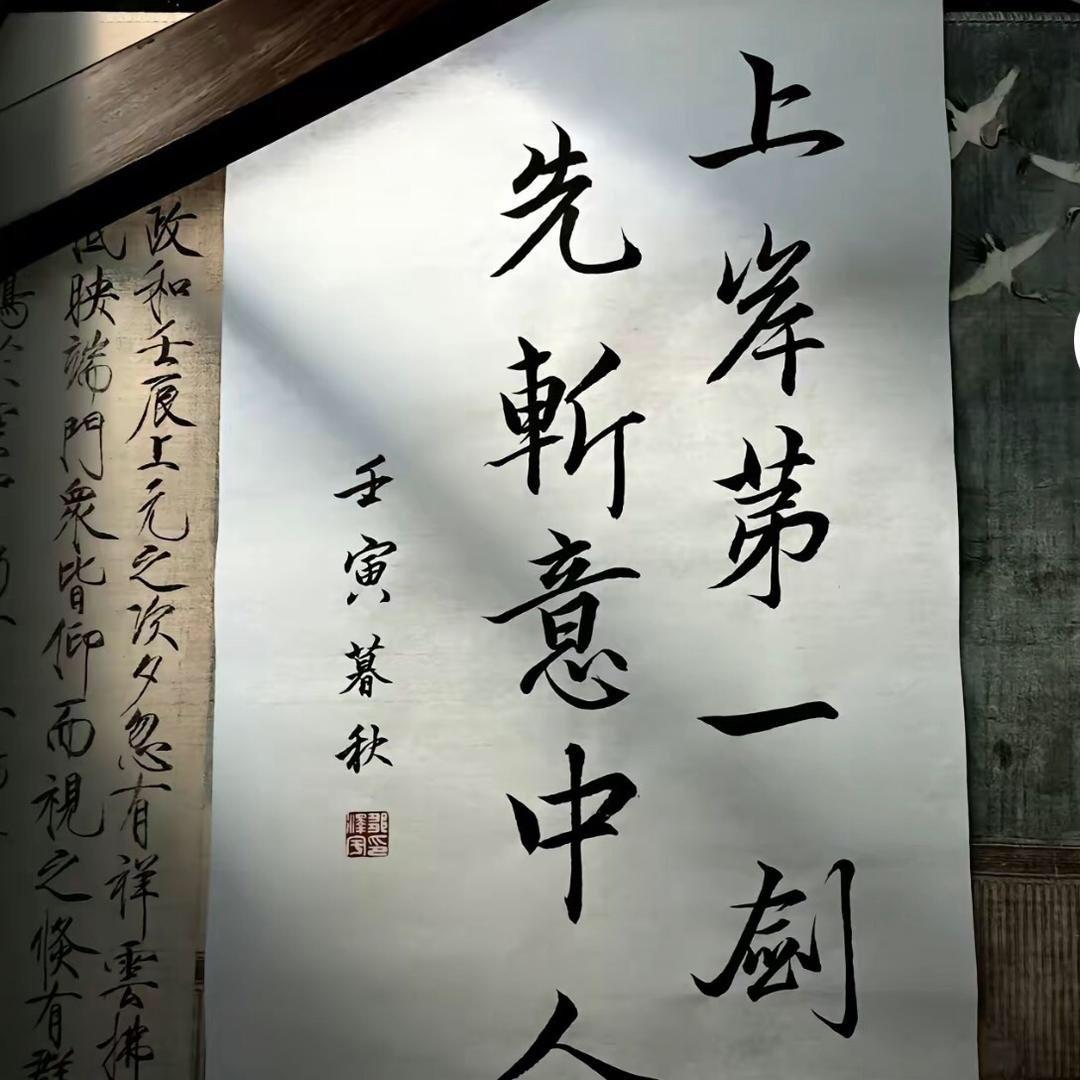 上岸苐一劍
先斬意中人
壬寅暮秋
政和壬辰上元之次夕忽有祥雲拂
低映端門眾皆仰而視之倏有群